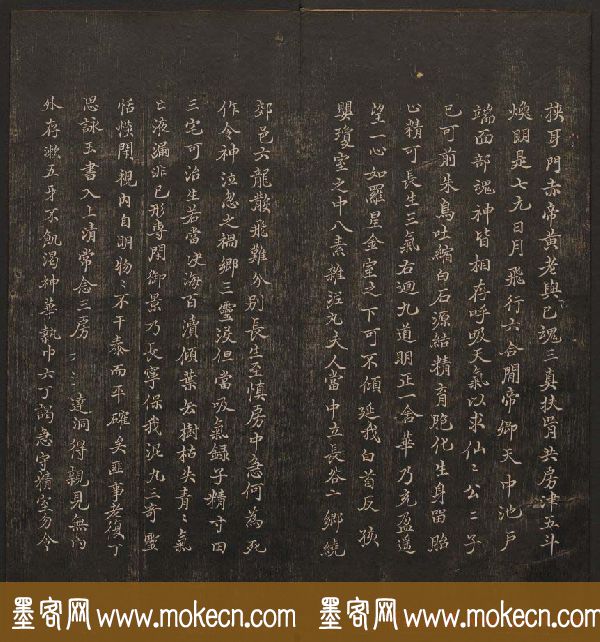 挾身門赤帝黃老與已魂三真扶胥共房津五斗
煥朙是七元日月飛行六合間帝鄉天中地戶
端面部魂神皆相存呼吸天氣以求仙〻公〻子
已可前朱鳥吐縮白石源結精育胞化生身留胎
止精可長生三氣右迴九道明正一含華乃充盈遙
望一心如羅星金室之下可不傾延我白首反孩
嬰瓊室之中八素集泥丸夫人當中立長谷鄉繞
郊邑六龍散飛難分別長生至慎房中急何為死
作令神泣忽之禍鄉三靈沒但當吸氣錄子精寸田
宅可治生若當決海百瀆傾葉去樹枯失青〻氣
亡液漏非已形專閉御景乃長寧保我泥丸三奇靈
恬惔閉視內自明物〻不干泰而平確矣匪事老復丁
思詠玉書入上清常念三房達洞得親見無內
外存漱五牙不飢渴神華執巾六丁謁急守精室勿令
墨客网 www.mokecn.com 墨客网 www.mokecn.com